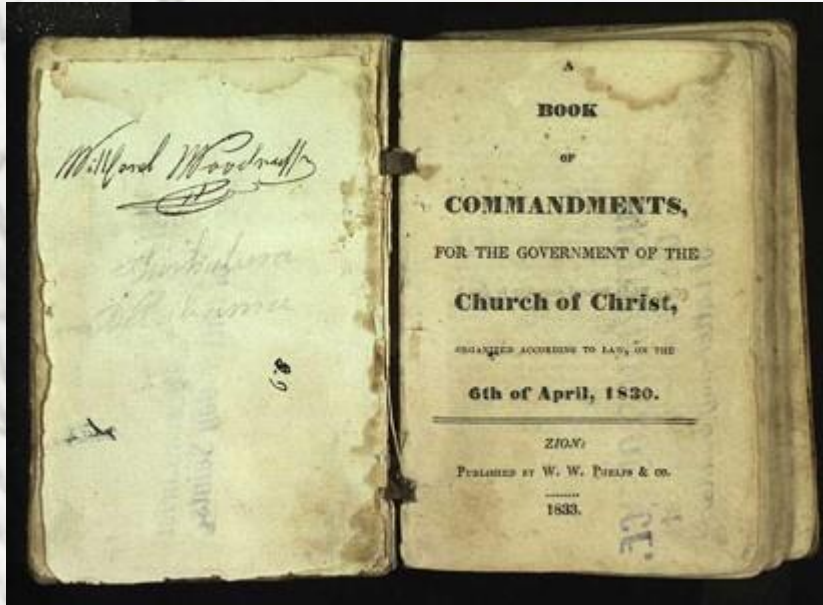 Willford Woodruff
A
BOOK
OF
COMMANDMENTS,
FOR THE GOVERNMENT OF THE
Church of Christ,
ORGANIZED ACCORDING TO LAW, ON THE
6th of April, 1830.
ZION:
PUBLISHED BY W. W. PHELPS & CO.
1833.